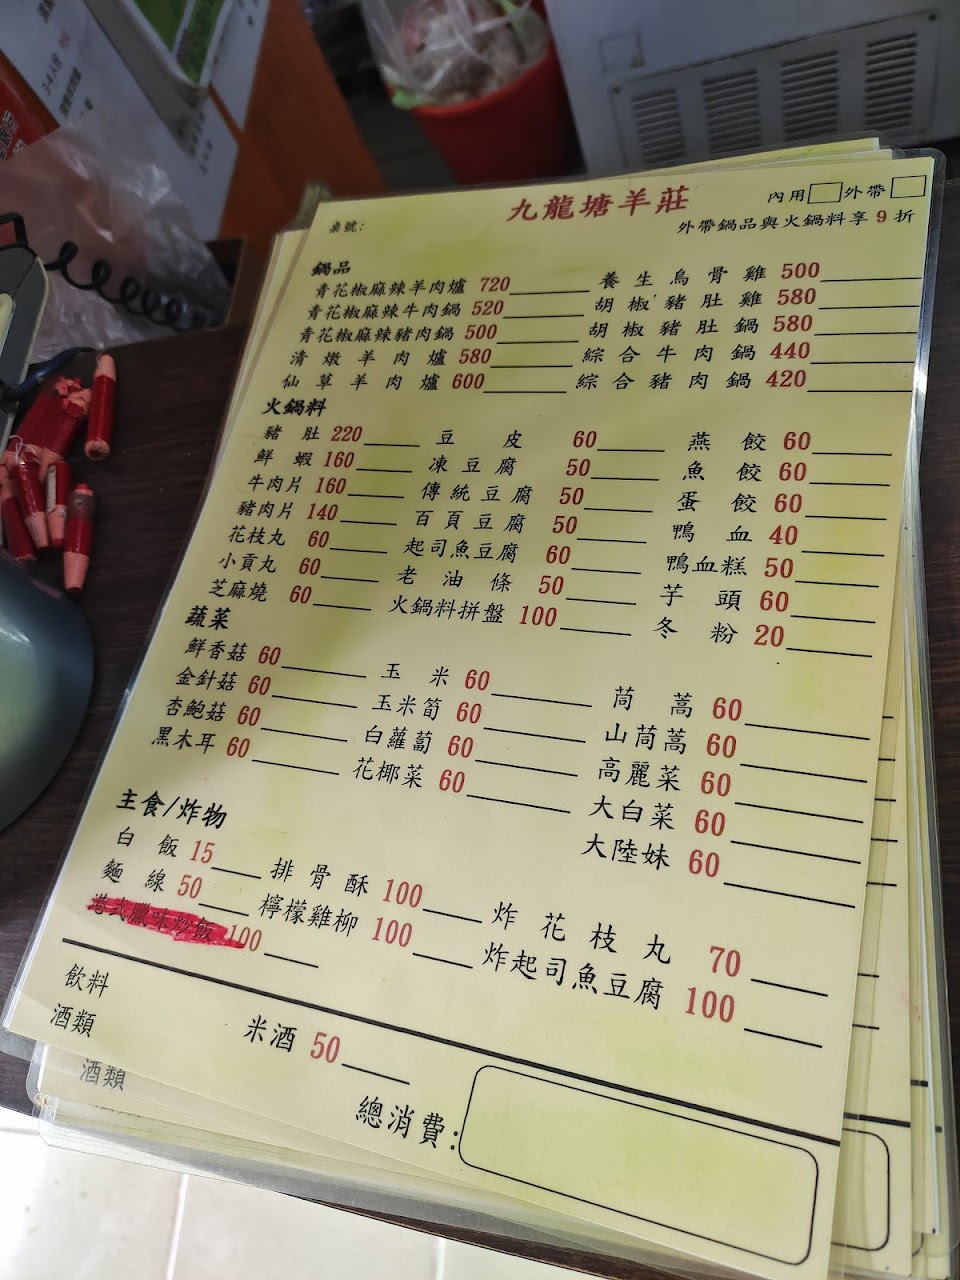 九龍塘羊莊
桌號:
內用 外帶
外帶鍋品與火鍋料享 9 折
鍋品
青花椒麻辣羊肉爐 720 養生烏骨雞 500
青花椒麻辣牛肉鍋 520 胡椒豬肚雞 580
青花椒麻辣豬肉鍋 500 胡椒豬肚鍋 580
清燉羊肉爐 580 綜合牛肉鍋 440
仙草羊肉爐 600 綜合豬肉鍋 420
火鍋料
豬肚 220 豆皮 60 燕餃 60
鮮蝦 160 凍豆腐 50 魚餃 60
牛肉片 160 傳統豆腐 50 蛋餃 60
豬肉片 140 百頁豆腐 50 鴨血 40
花枝丸 60 起司魚豆腐 60 鴨血糕 50
小貢丸 60 老油條 50 芋頭 60
芝麻燒 60 火鍋料拼盤 100 冬粉 20
蔬菜
鮮香菇 60 玉米 60 茼蒿 60
金針菇 60 玉米筍 60 山茼蒿 60
杏鮑菇 60 白蘿蔔 60 高麗菜 60
黑木耳 60 花椰菜 60 大白菜 60
大陸妹 60
主食/炸物
白飯 15 排骨酥 100 炸花枝丸 70
麵線 50 檸檬雞柳 100 炸起司魚豆腐 100
港式臘味炒飯 100
飲料
酒類 米酒 50
總消費:
酒類